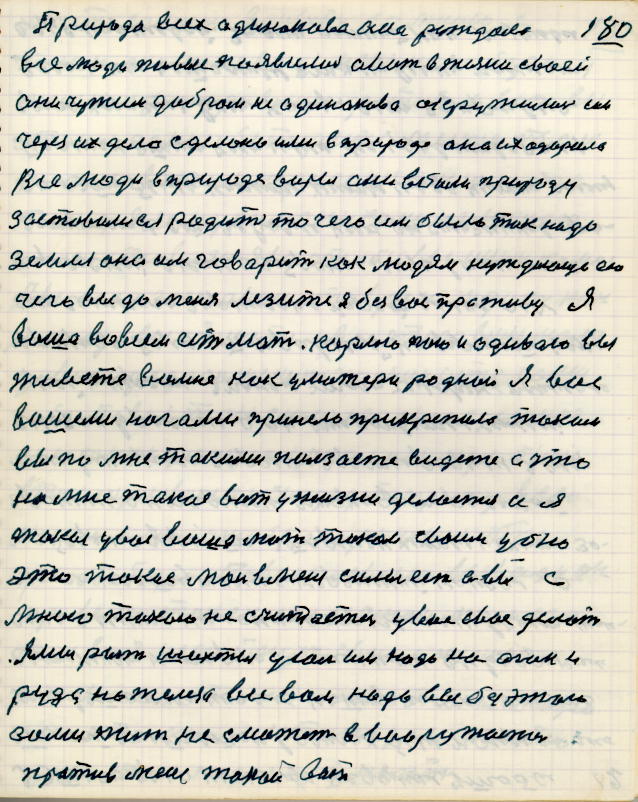 Природа всех одинаково она рождала 180
все люди живые появились а вот в жизни своей
они чужим добром не одинаково окружились
через их дело сделоно ими в природе она их одарила
Все люди в природе воры они встали природу
заставили родить то чего им было так надо
земля она им говорит как людям нуждающи
чего вы до меня лезите я без вас проживу Я
ваша во всем ест мат. кормлю пою и одеваю вы
живете во мне как у матери родной Я вас
вашими ногами принела прикрепила таком
вы по мне такими ползаете видете а что
на мне такое вот у жизни делается а я
такая у вас ваша мат таком своим
это такое мои вмени силы ест а вы с
много такого не считаетеся у вас свое делат
. Ями рыт шахты угал им надо на огон и
руда на железа все вам надо вы без этого
сами жит не сможете вооружаетес
против мене такой вот